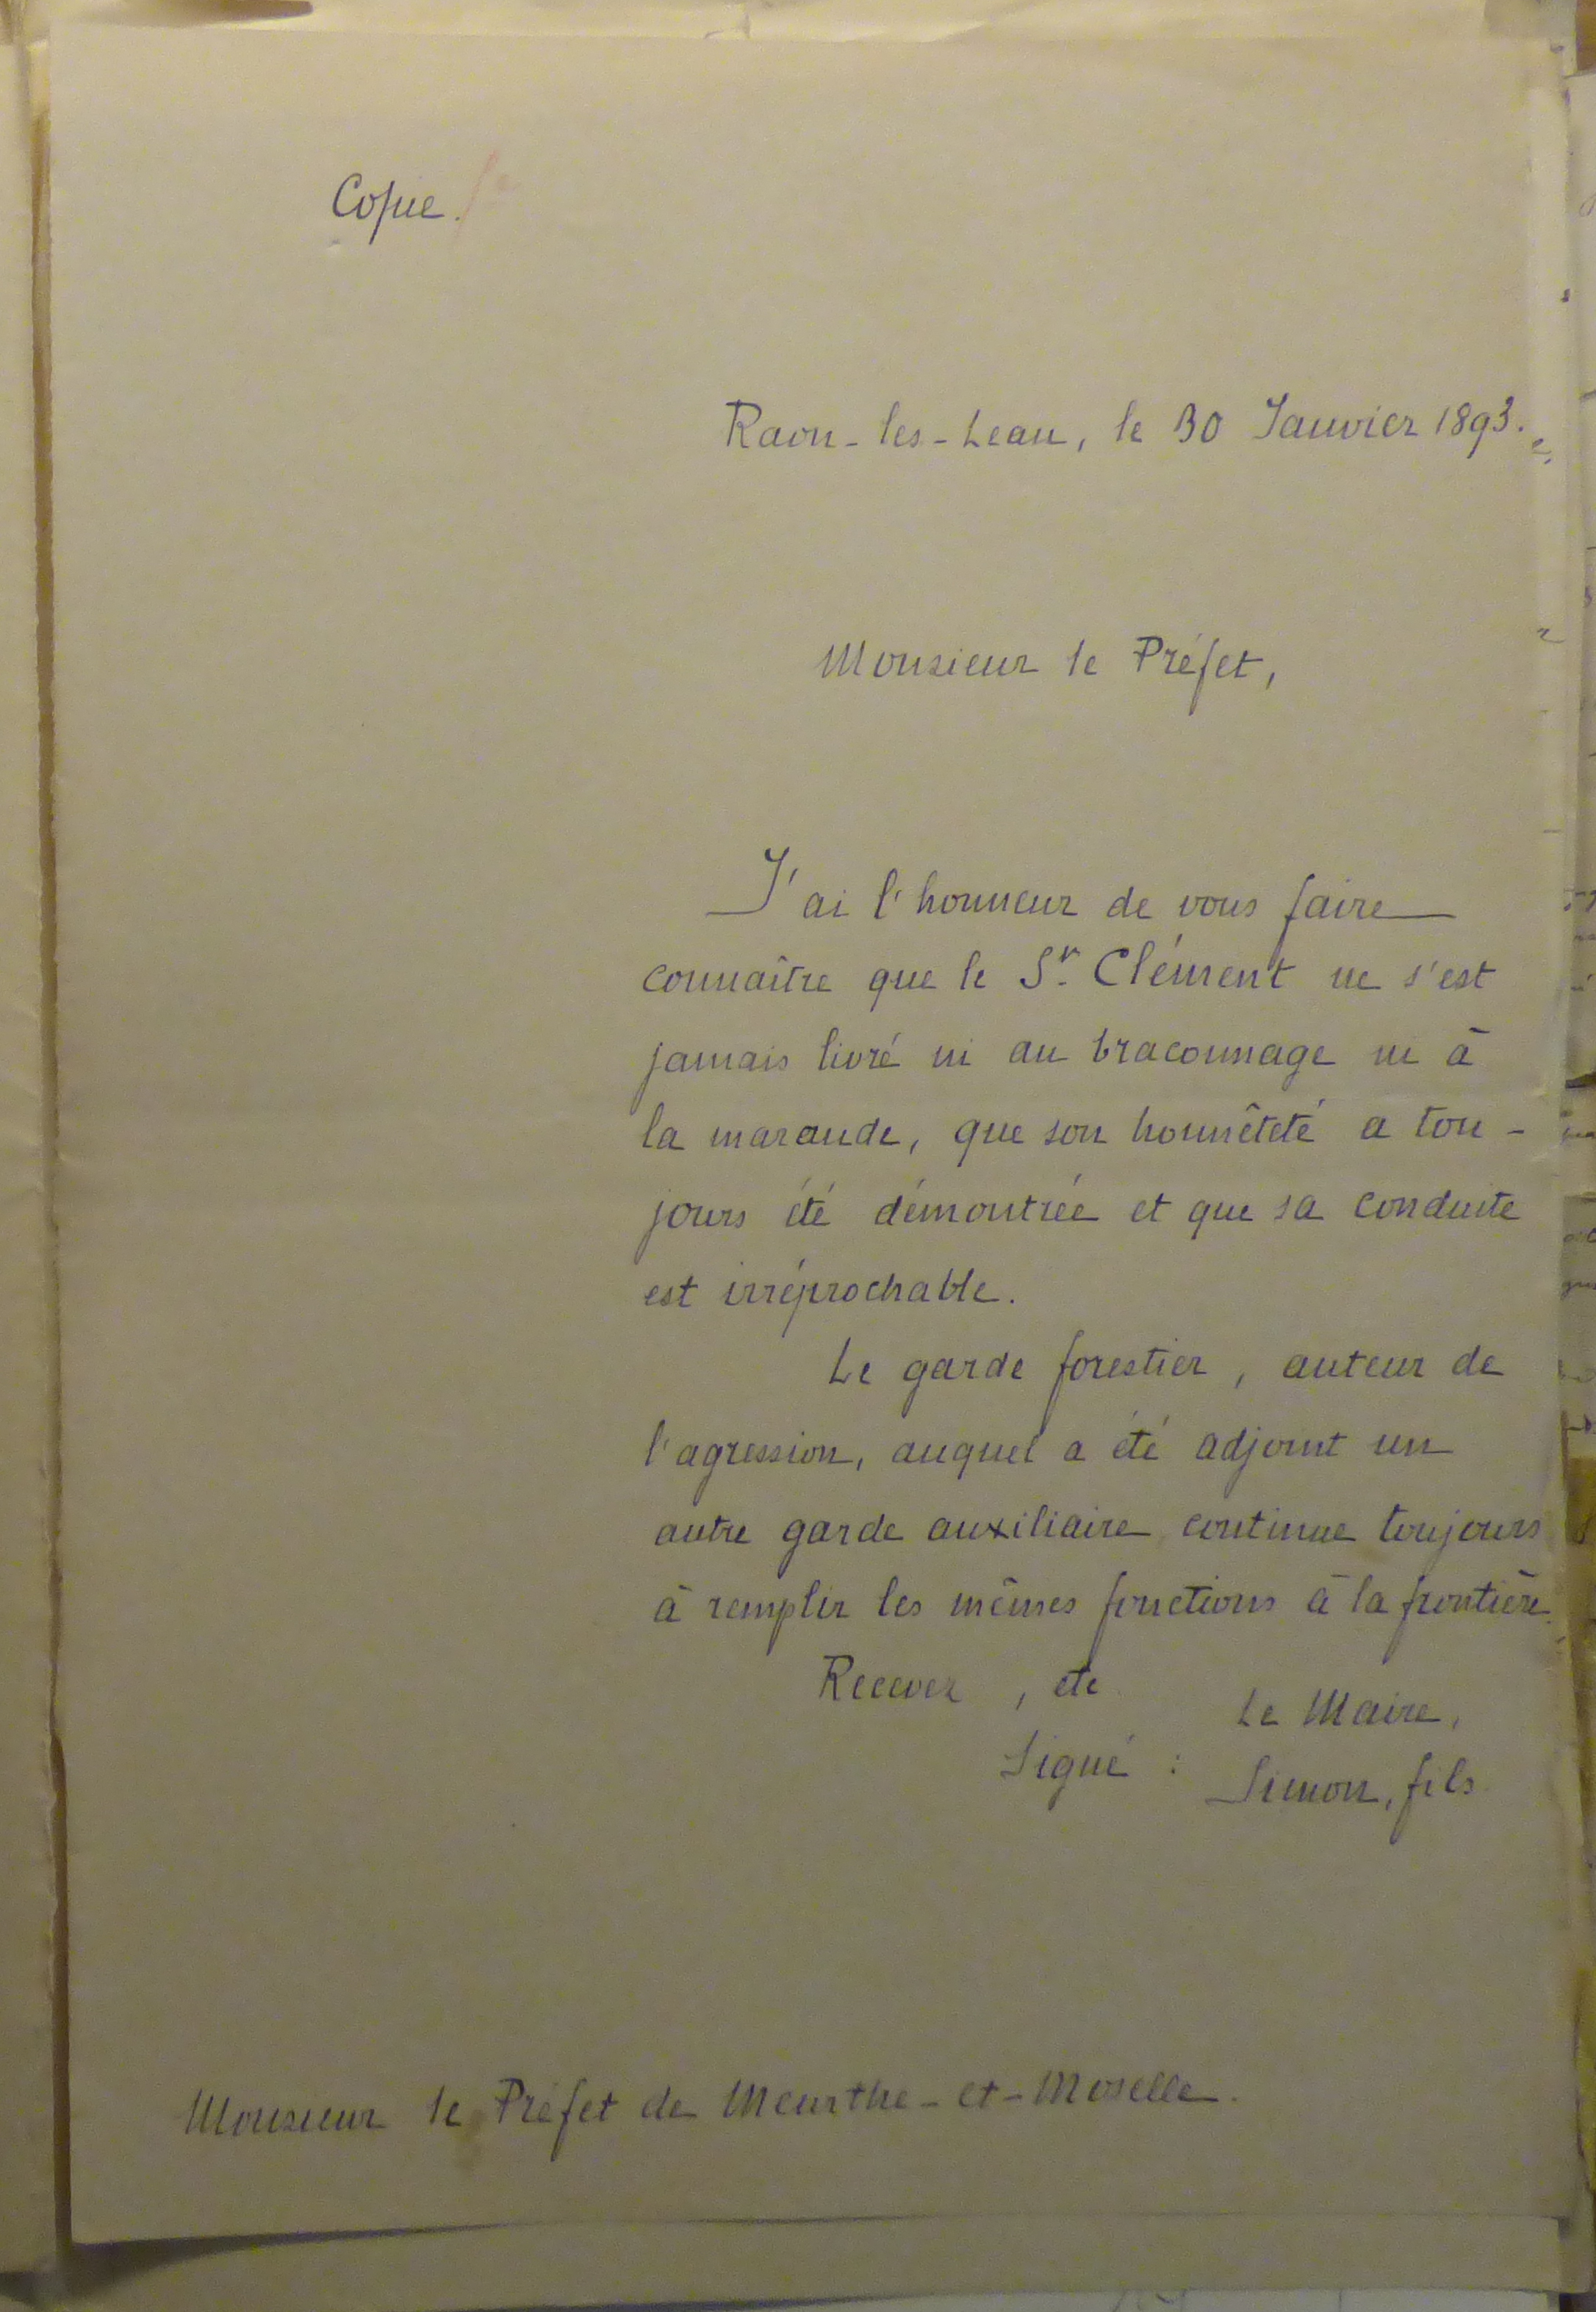 Copie.
Raon-les-Leau, le 30 Janvier 1893.
Monsieur le Préfet,
J'ai l'honneur de vous faire
connaître que le Sr. Clément ne s'est
jamais livré ni au braconnage ni à
la maraude, que son honnêteté a tou-
jours été démontrée et que sa conduite
est irréprochable.
Le garde forestier, auteur de
l'agression, auquel a été adjoint un
autre garde auxiliaire, continue toujours
à remplir les mêmes fonctions à la frontière.
Recevez, etc
Le Maire,
Signé : Simon, fils
Monsieur le Préfet de Meurthe-et-Moselle.